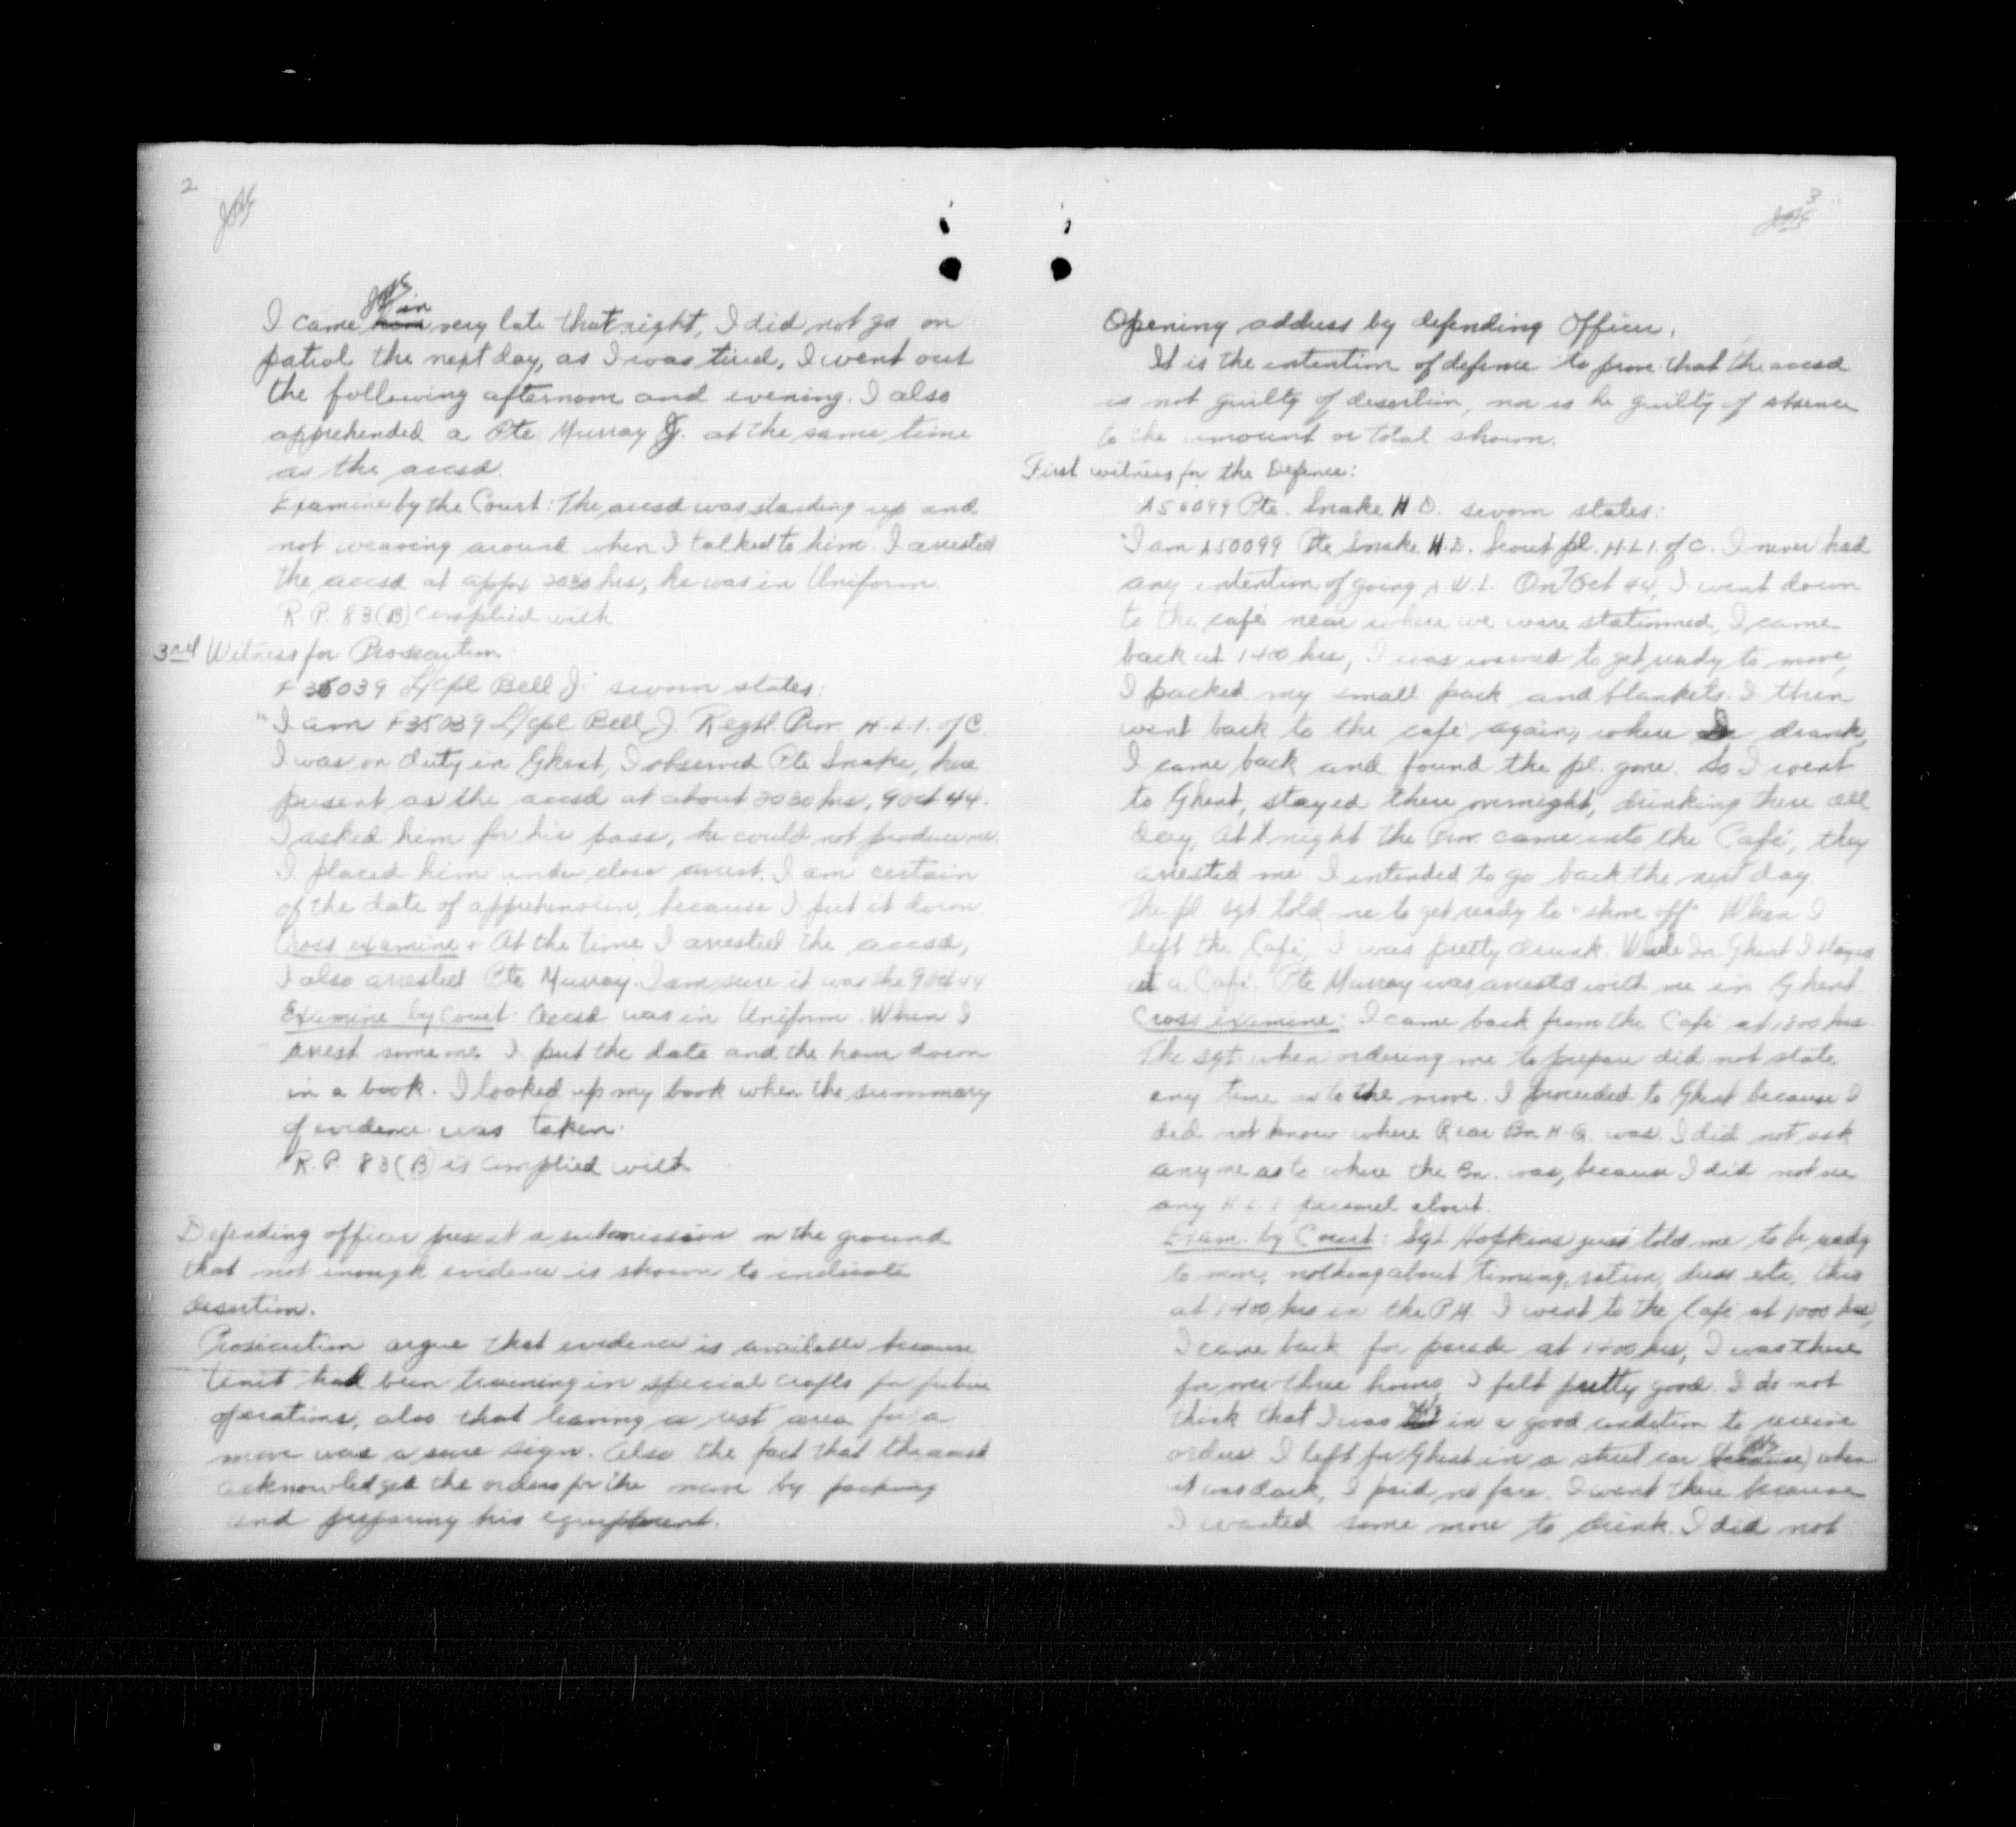 2
I came in very late that night, I did not go on
patrol the next day, as I was tired, I went out
the following afternoon and evening. I also
apprehended a Pte Murray J. at the same time
as the accsd.
Examine by the Court: The accsd was standing up and
not weaving around when I talked to him. I arrested
the accsd at appox 2030 hrs, he was in Uniform.
R.P. 83(B) complied with
3rd Witness for Prosecution
F35039 L/Cpl Bell J. sworn states:
"I am F35039 L/Cpl Bell J. Regtl. Prov. H.L.I. of C.
I was on duty in Ghent, I observed Pte Snake, here
present as the accsd at about 2030 hrs, 9 Oct 44.
I asked him for his pass, he could not produce one.
I placed him under close arrest. I am certain
of the date of apprehension, because I put it down
Cross examine: At the time I arrested the accsd,
I also arrested Pte Murray. I am sure it was the 9 Oct 44
Examine by Court: Accsd was in Uniform. When I
arrest someone I put the date and the hour down
in a book. I looked up my book when the summary
of evidence was taken.
R.P. 83(B) is complied with
Defending officer present a submission on the ground
that not enough evidence is shown to indicate
desertion.
Prosecution argue that evidence is available because
Unit had been training in special crafts for future
operations, also that leaving a rest area for a
move was a sure sign. Also the fact that the accsd
acknowledged the orders for the move by packing
and preparing his equiptment.
3
Opening address by defending Officer.
It is the intention of defence to prove that the accsd
is not guilty of desertion, nor is he guilty of absence
to the amount or total shown.
First witness for the Defence:
A50099 Pte. Snake H.D. sworn states:
"I am A50099 Pte Snake H.D. Scout pl. H.L.I. of C. I never had
any intention of going A.W.L. On 7 Oct 44, I went down
to the café near where we were stationned, I came
back at 1400 hrs, I was warned to get ready to move,
I packed my small pack and blankets. I then
went back to the café again, where I drank,
I came back and found the pl. gone. So I went
to Ghent, stayed there overnight, drinking there all
day, At night the Prov. came into the Café, they
arrested me. I intended to go back the next day.
The pl. sgt. told me to get ready to "shove off" When I
left the Café, I was pretty drunk. While In Ghent I stayed
at a Café. Pte Murray was arrested with me in Ghent.
Cross examine: I came back from the Café at 1800 hrs.
The sgt. when ordering me to prepare did not state
any time as to the move. I proceeded to Ghent because I
did not know where Rear Bn H.Q. was. I did not ask
anyone as to where the Bn. was, because I did not see
any H.L.I. personnel about.
Exam. by Court: Sgt Hopkins just told me to be ready
to move, nothing about timing, dress etc, this
at 1400 hrs in the P.M. I went to the Café at 1000 hrs,
I came back for parade at 1400 hrs, I was there
for over three hours, I felt pretty good. I do not
think that I was in a good condition to receive
orders. I left for Ghent in a street car (because) when
it was dark, I paid no fare. I went there because
I wanted some more to drink. I did not